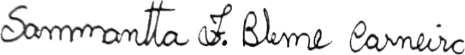 Sammantta F. Bleme Carneiro